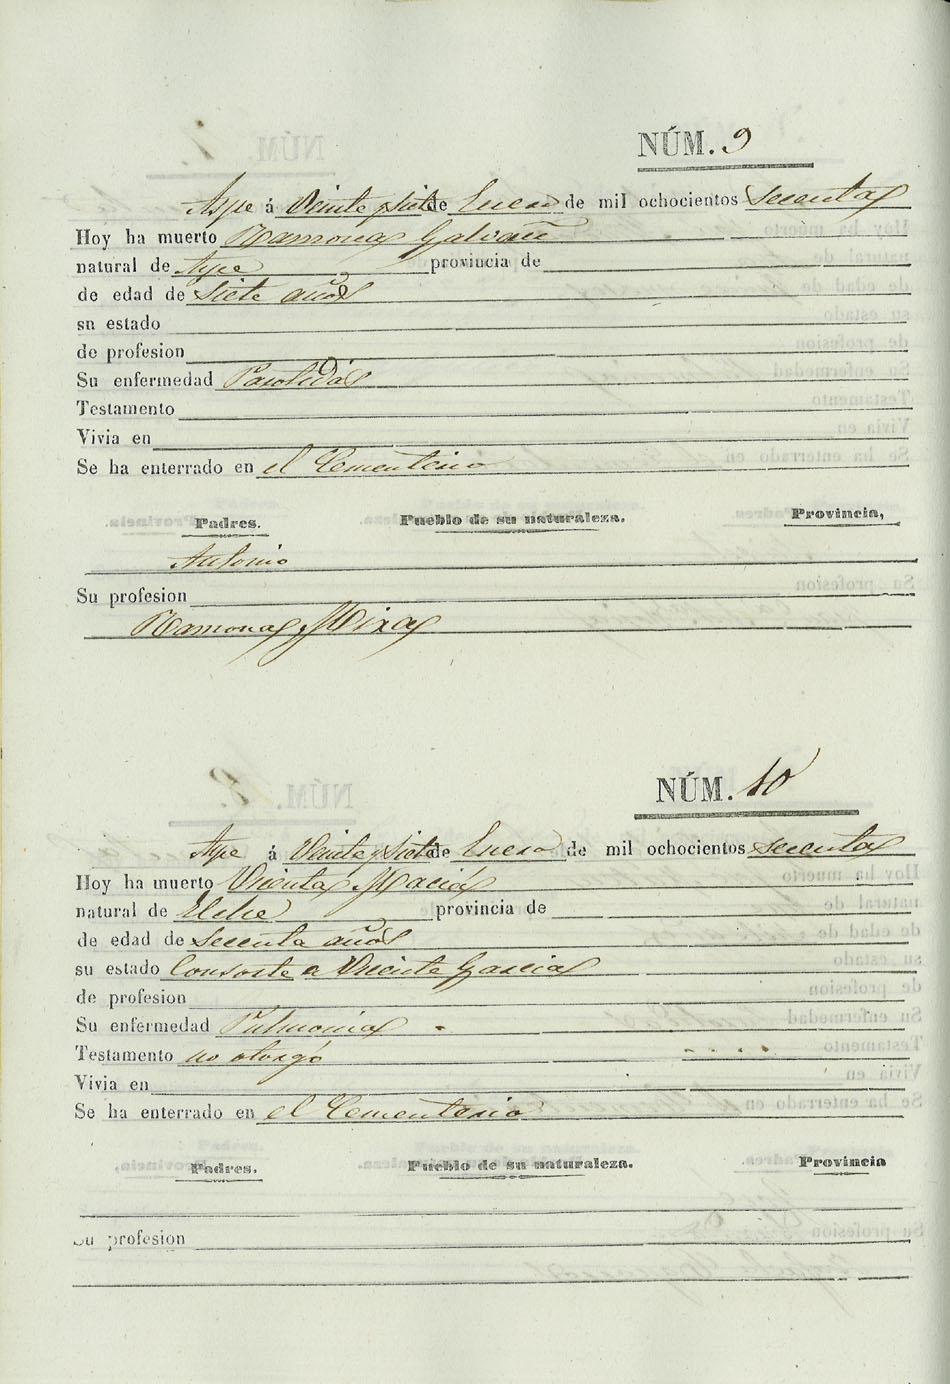 NÚM. 9
Aspe á Veinte y siete de Enero de mil ochocientos secenta
Hoy ha muerto Ramona Galvañ
natural de Aspe provincia de
de edad de siete años
su estado
de profesion
Su enfermedad Parotidas
Testamento
Vivia en
Se ha enterrado en el Cementerio
Padres. Pueblo de su naturaleza. Provincia,
Antonio
Su profesion
Ramona Mira
NÚM. 10
Aspe á Veinte y siete de Enero de mil ochocientos secenta
Hoy ha muerto Vicenta Maciá
natural de Elche provincia de
de edad de secenta años
su estado Consorte a Vicente Garcia
de profesion
Su enfermedad Pulmonia
Testamento no otorgó
Vivia en
Se ha enterrado en el Cementerio
Padres. Pueblo de su naturaleza. Provincia
Su profesion